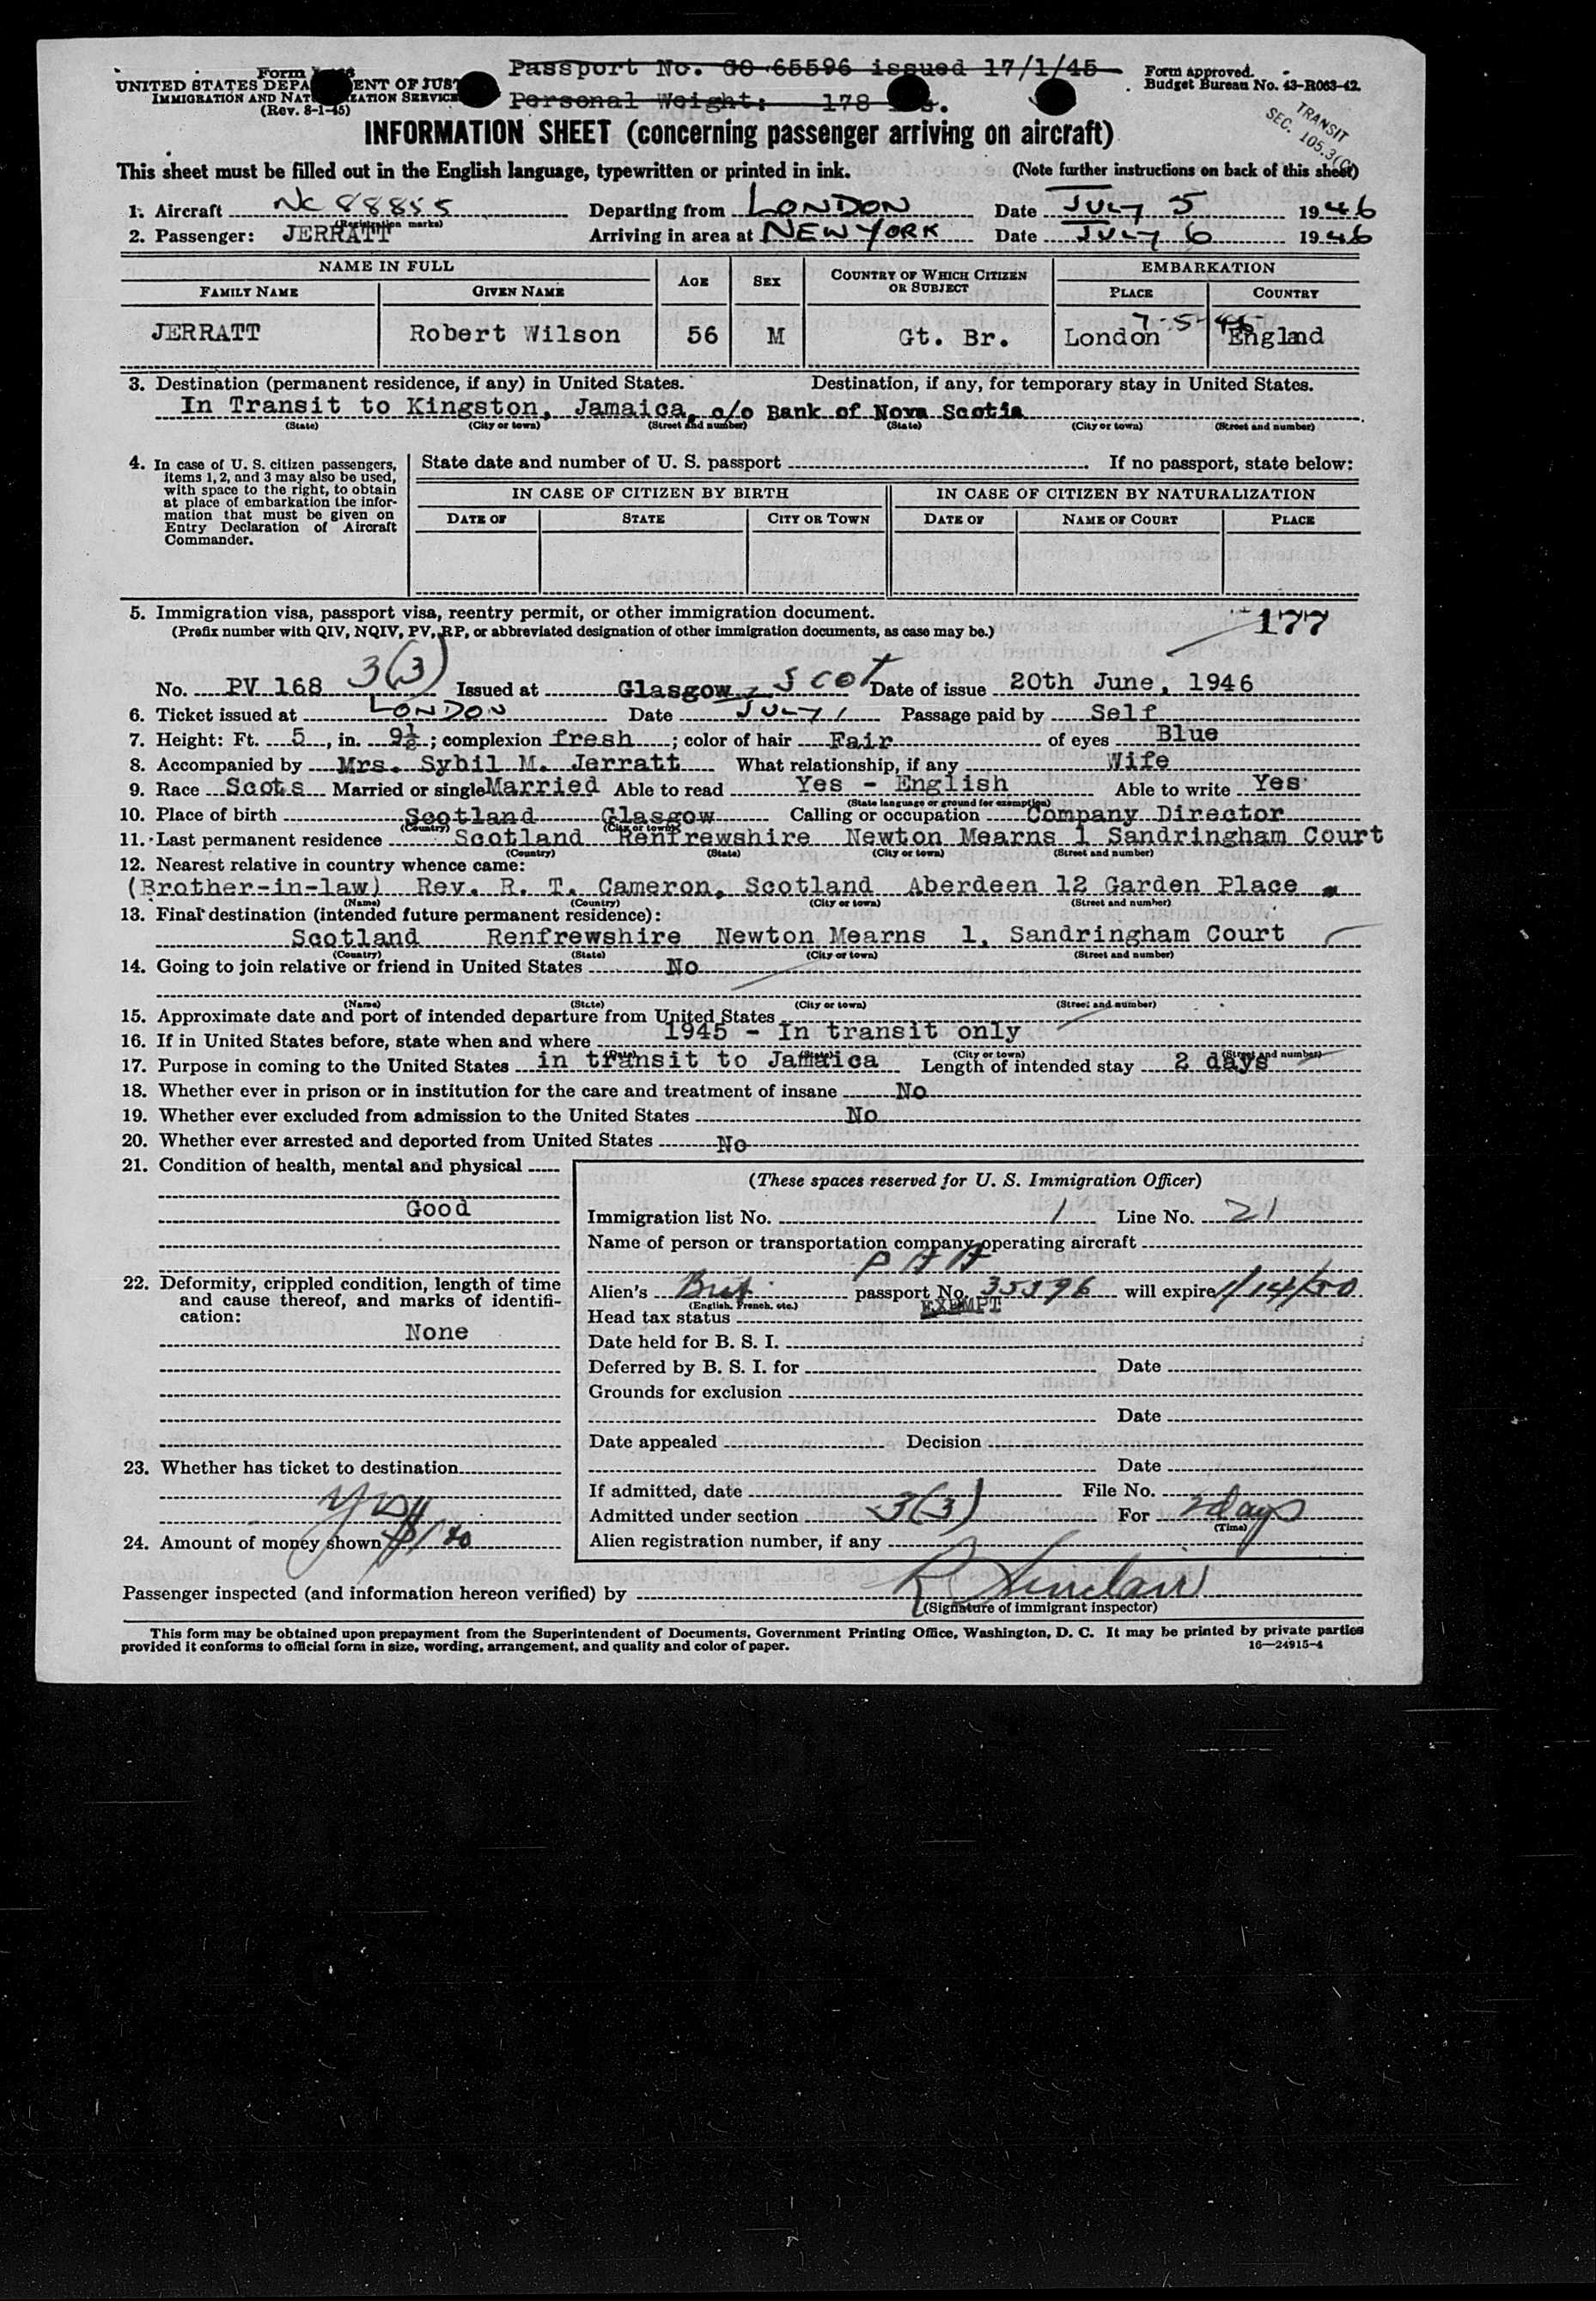 Passport No. GO 65596 issued 17/1/45
Personal Weight: 178
Form
UNITED STATES DEPA ENT OF JUST
IMMIGRATION AND NAT IZATION SERVICE
(Rev. 8-1-45)
Form approved.
Budget Bureau No. 43-R063-42.
TRANSIT
SEC. 105.3(C)
INFORMATION SHEET (concerning passenger arriving on aircraft)
This sheet must be filled out in the English language, typewritten or printed in ink. (Note further instructions on back of this sheet)
1. Aircraft NC 88855 Departing from LONDON Date JULY 5 1946
(Registration marks)
2. Passenger: JERRATT Arriving in area at NEW YORK Date JULY 6 1946
NAME IN FULL AGE SEX COUNTRY OF WHICH CITIZEN OR SUBJECT EMBARKATION
FAMILY NAME GIVEN NAME PLACE COUNTRY
7-5-46
JERRATT Robert Wilson 56 M Gt. Br. London England
3. Destination (permanent residence, if any) in United States. Destination, if any, for temporary stay in United States.
In Transit to Kingston, Jamaica, c/o Bank of Nova Scotia
(State) (City or town) (Street and number) (State) (City or town) (Street and number)
4. In case of U. S. citizen passengers, items 1, 2, and 3 may also be used, with space to the right, to obtain at place of embarkation the information that must be given on Entry Declaration of Aircraft Commander.
State date and number of U. S. passport If no passport, state below:
IN CASE OF CITIZEN BY BIRTH IN CASE OF CITIZEN BY NATURALIZATION
DATE OF STATE CITY OR TOWN DATE OF NAME OF COURT PLACE
5. Immigration visa, passport visa, reentry permit, or other immigration document. 177
(Prefix number with QIV, NQIV, PV, RP, or abbreviated designation of other immigration documents, as case may be.)
No. PV 168 3(3) Issued at Glasgow, Scot Date of issue 20th June, 1946
6. Ticket issued at LONDON Date JULY 1 Passage paid by Self
7. Height: Ft. 5, in. 9½; complexion fresh; color of hair Fair of eyes Blue
8. Accompanied by Mrs. Sybil M. Jerratt What relationship, if any Wife
9. Race Scots Married or single Married Able to read Yes - English Able to write Yes
(State language or ground for exemption)
10. Place of birth Scotland Glasgow Calling or occupation Company Director
(Country) (City or town)
11. Last permanent residence Scotland Renfrewshire Newton Mearns 1 Sandringham Court
(Country) (State) (City or town) (Street and number)
12. Nearest relative in country whence came:
(Brother-in-law) Rev. R. T. Cameron, Scotland Aberdeen 12 Garden Place
(Name) (Country) (City or town) (Street and number)
13. Final destination (intended future permanent residence):
Scotland Renfrewshire Newton Mearns 1, Sandringham Court
(Country) (State) (City or town) (Street and number)
14. Going to join relative or friend in United States No
(Name) (State) (City or town) (Street and number)
15. Approximate date and port of intended departure from United States
16. If in United States before, state when and where 1945 - In transit only
(Date) (State) (City or town) (Street and number)
17. Purpose in coming to the United States in transit to Jamaica Length of intended stay 2 days
18. Whether ever in prison or in institution for the care and treatment of insane No
19. Whether ever excluded from admission to the United States No
20. Whether ever arrested and deported from United States No
21. Condition of health, mental and physical
Good
22. Deformity, crippled condition, length of time and cause thereof, and marks of identification:
None
23. Whether has ticket to destination
24. Amount of money shown $140
(These spaces reserved for U. S. Immigration Officer)
Immigration list No. 1 Line No. 21
Name of person or transportation company operating aircraft
PAA
Alien's Brit passport No. 35396 will expire 1/14/50
(English, French, etc.)
Head tax status EXEMPT
Date held for B. S. I.
Deferred by B. S. I. for Date
Grounds for exclusion
Date
Date appealed Decision
Date
If admitted, date File No.
Admitted under section 3(3) For 2 days
(Time)
Alien registration number, if any
Passenger inspected (and information hereon verified) by R Sinclair
(Signature of immigrant inspector)
This form may be obtained upon prepayment from the Superintendent of Documents, Government Printing Office, Washington, D. C. It may be printed by private parties
provided it conforms to official form in size, wording, arrangement, and quality and color of paper. 16—24915-4